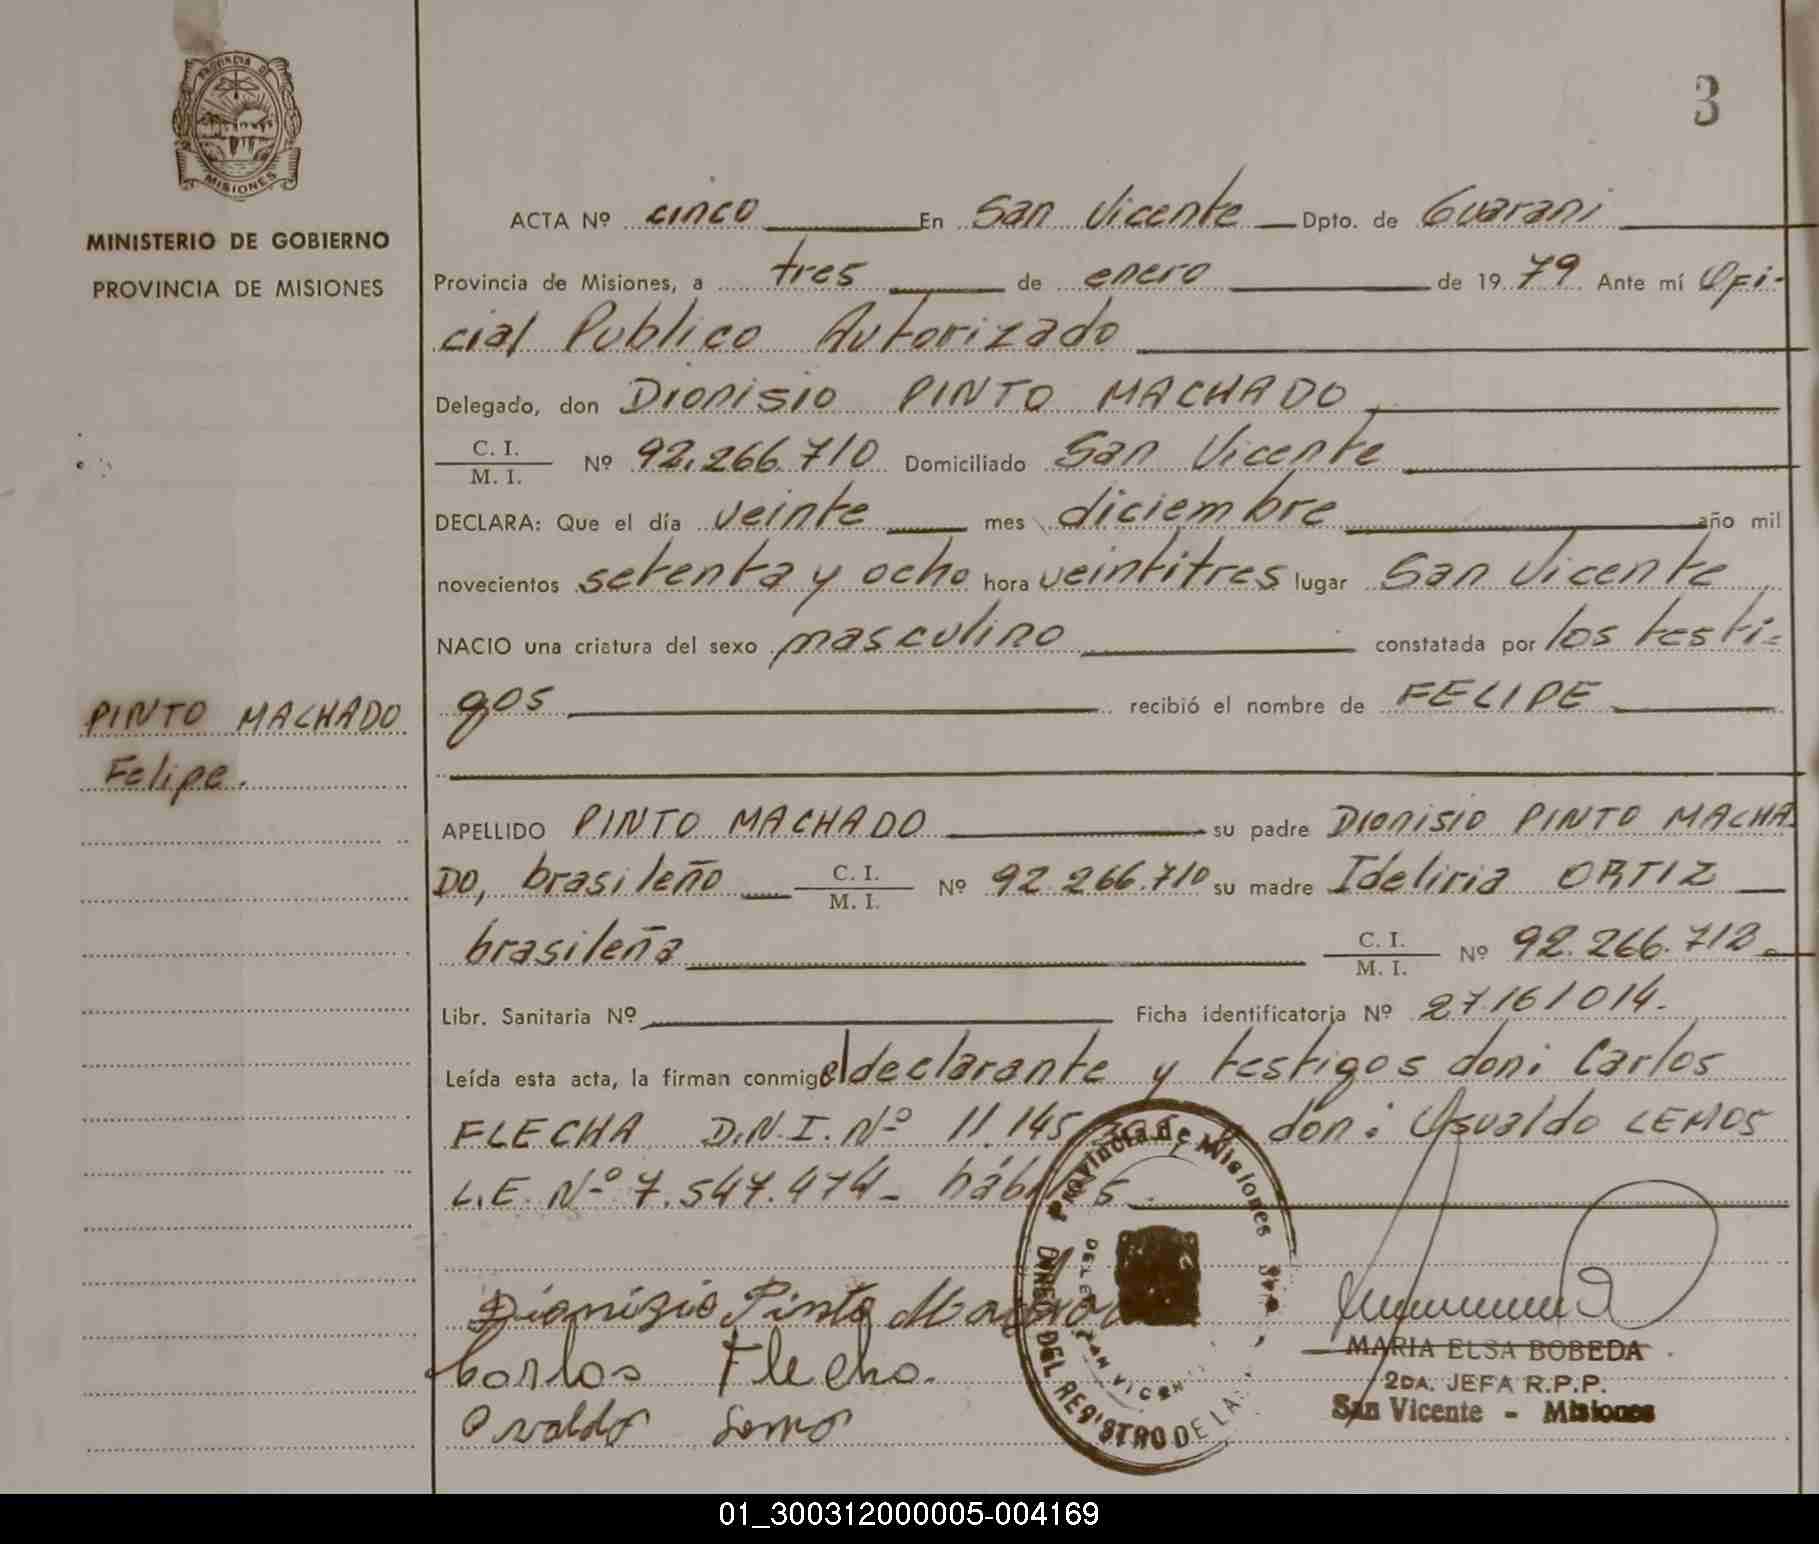 PROVINCIA DE
MISIONES
MINISTERIO DE GOBIERNO
PROVINCIA DE MISIONES
PINTO MACHADO
Felipe.
3
ACTA Nº cinco En San Vicente Dpto. de Guarani
Provincia de Misiones, a tres de enero de 1979 Ante mí Ofi-
cial Publico Autorizado
Delegado, don Dionisio PINTO MACHADO
C. I. / M. I. Nº 92.266.710 Domiciliado San Vicente
DECLARA: Que el día veinte mes diciembre año mil
novecientos setenta y ocho hora veintitres lugar San Vicente
NACIO una criatura del sexo masculino constatada por los testi-
gos recibió el nombre de FELIPE
APELLIDO PINTO MACHADO su padre Dionisio PINTO MACHA
DO, brasileño C. I. / M. I. Nº 92.266.710 su madre Ideliria ORTIZ
brasileña C. I. / M. I. Nº 92.266.712.
Libr. Sanitaria Nº Ficha identificatoria Nº 27.161014.
Leída esta acta, la firman conmigo el declarante y testigos don: Carlos
FLECHA D.N.I. Nº 11.145 don: Osvaldo LEMOS
L.E. Nº 7.547.474- hábiles
Dionizio Pinto Machado
Carlos Flecha.
Osvaldo Lemos
Provincia de Misiones
DIREC DEL REGISTRO DE LAS
DEL SAN VICEN
MARIA ELSA BOBEDA
2DA. JEFA R.P.P.
San Vicente - Misiones
01_300312000005-004169